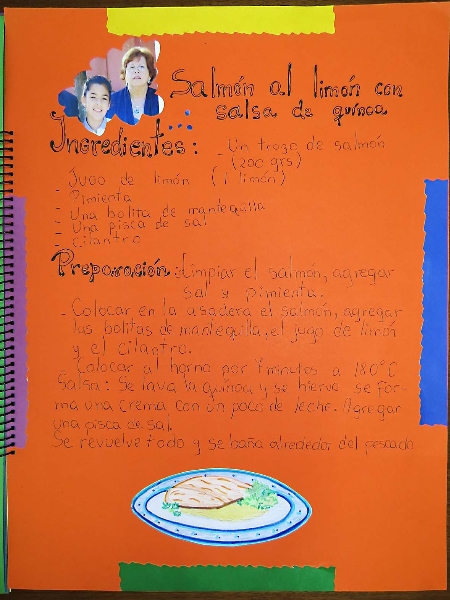 Salmón al limón con
salsa de quinoa
Ingredientes:
- Un trozo de salmón
(200 grs)
- Jugo de limón (1 limón)
- Pimienta
- Una bolita de mantequilla
- Una pisca de sal
- Cilantro
Preparación: Limpiar el salmón, agregar
sal y pimienta.
- Colocar en la asadera el salmón, agregar
las bolitas de mantequilla, el jugo de limón
y el cilantro.
Colocar al horno por 7 minutos a 180°C
Salsa: Se lava la quinoa y se hierve se for-
ma una crema con un poco de leche. Agregar
una pisca de sal.
Se revuelve todo y se baña alrededor del pescado